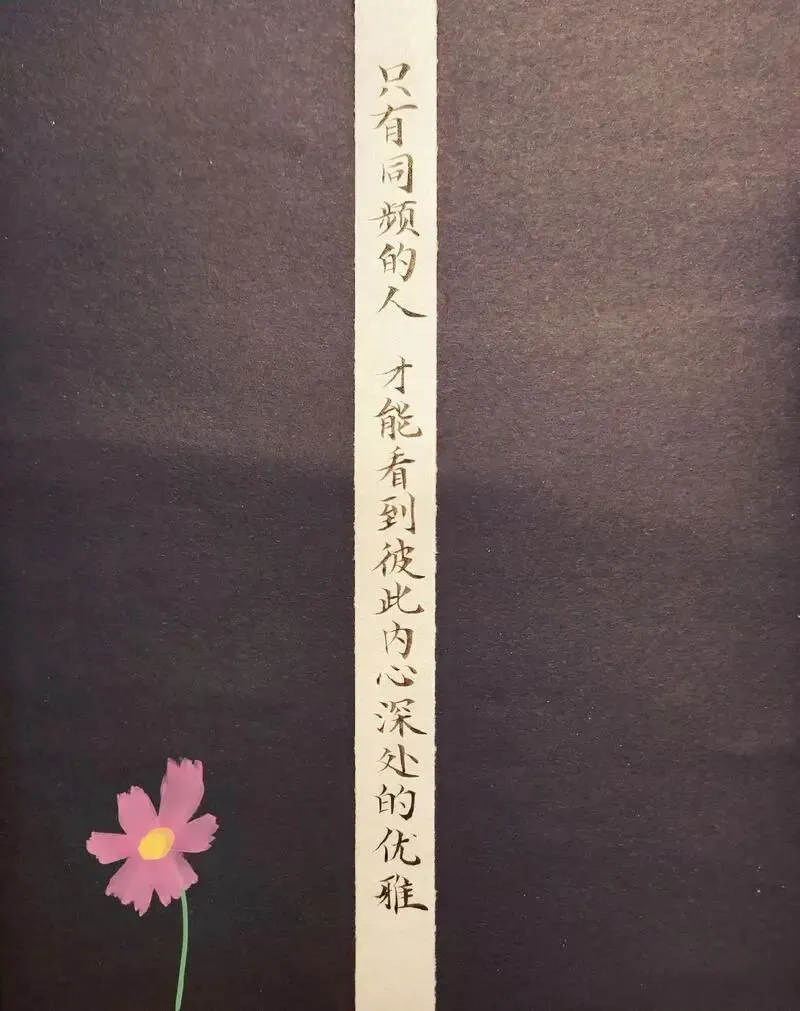 只有同频的人 才能看到彼此内心深处的优雅